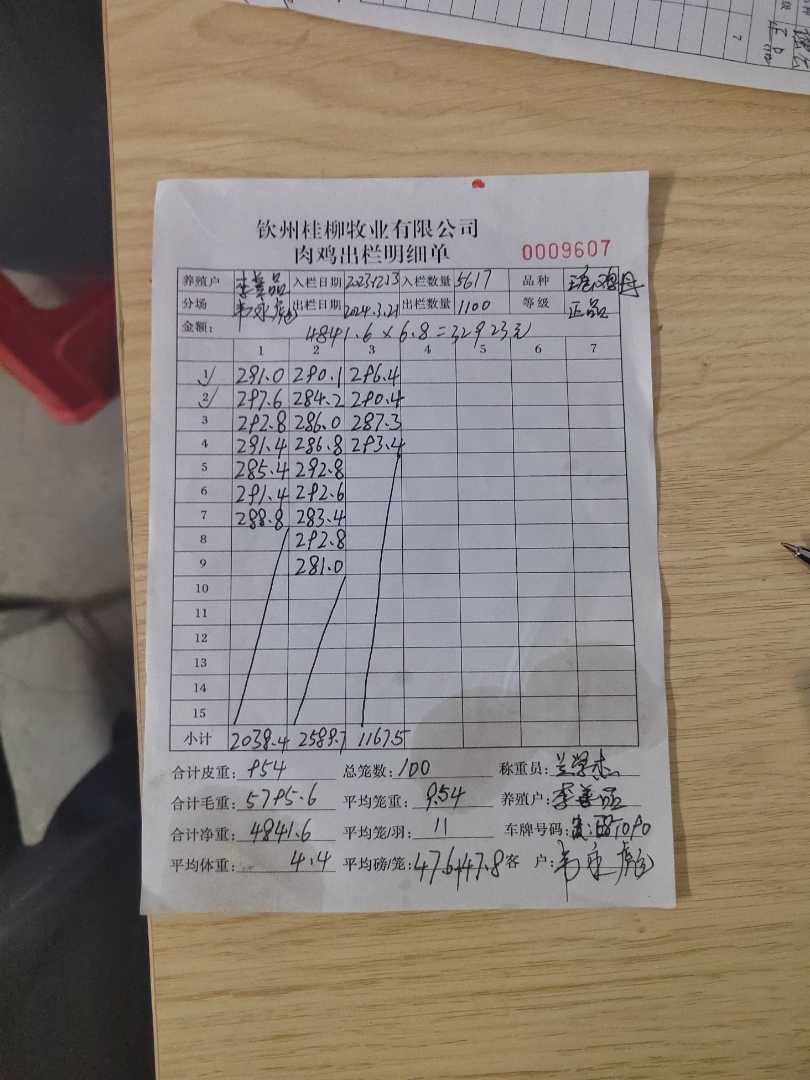 钦州桂柳牧业有限公司
肉鸡出栏明细单 0009607
养殖户 李善品 入栏日期 2023.12.13 入栏数量 5617 品种
分场 韦永彪 出栏日期 2024.3.21 出栏数量 1100 等级 正品
金额: 4841.6×6.8=32923元
1 2 3 4 5 6 7
1 291.0 290.1 296.4
2 297.6 284.2 290.4
3 292.8 286.0 287.3
4 291.4 286.8 293.4
5 285.4 292.8
6 291.4 292.6
7 288.8 283.4
8 292.8
9 281.0
10
11
12
13
14
15
小计 2038.4 2589.7 1167.5
合计皮重: 954 总笼数: 100 称重员: 兰学杰
合计毛重: 5795.6 平均笼重: 9.54 养殖户: 李善品
合计净重: 4841.6 平均笼/羽: 11 车牌号码:
平均体重: 4.4 平均磅/笼: 47.6+47.8 客 户: 韦永彪
7